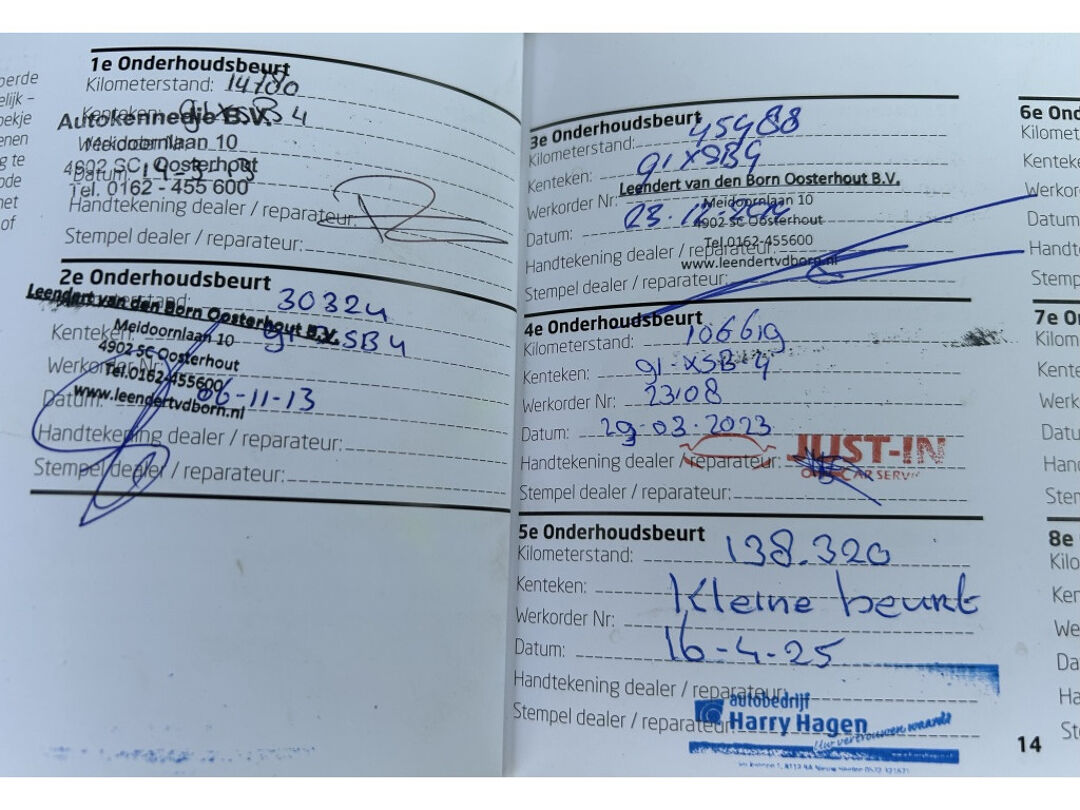 oerde
elijk –
oekje
enen
g te
ode
net
of
1e Onderhoudsbeurt
Kilometerstand: 14780
Kenteken: 91XSB4
Autokennedie B.V.
Meidoornlaan 10
4902 SC Oosterhout
Datum: 14-3-13
Tel. 0162 - 455 600
Handtekening dealer / reparateur:
Stempel dealer / reparateur:
2e Onderhoudsbeurt
30324
Leendert van den Born Oosterhout B.V.
Kenteken: 91 XSB4
Meidoornlaan 10
4902 SC Oosterhout
Werkorder Nr:
Tel.0162-455600
Datum: 06-11-13
www.leendertvdborn.nl
Handtekening dealer / reparateur:
Stempel dealer / reparateur:
3e Onderhoudsbeurt
Kilometerstand: 45988
Kenteken: 91XSB4
Leendert van den Born Oosterhout B.V.
Werkorder Nr:
Meidoornlaan 10
4902 SC Oosterhout
Datum:
Tel.0162-455600
Handtekening dealer / reparateur:
www.leendertvdborn.nl
Stempel dealer / reparateur:
4e Onderhoudsbeurt
Kilometerstand: 106619
Kenteken: 91-XSB-4
Werkorder Nr: 23108
Datum: 29-03-2023
Handtekening dealer / reparateur:
JUST-IN
CAR SERV
Stempel dealer / reparateur:
5e Onderhoudsbeurt
Kilometerstand: 138.320
Kenteken: Kleine beurt
Werkorder Nr:
Datum: 16-4-25
Handtekening dealer / reparateur:
autobedrijf
Stempel dealer / reparateur:
Harry Hagen
Uw vertrouwen waard!
6e Ond
Kilomet
Kenteke
Werkor
Datum
Handt
Stemp
7e Or
Kilom
Kente
Werk
Datu
Hand
Sten
8e
Kilo
Ken
We
Da
Ha
St
14